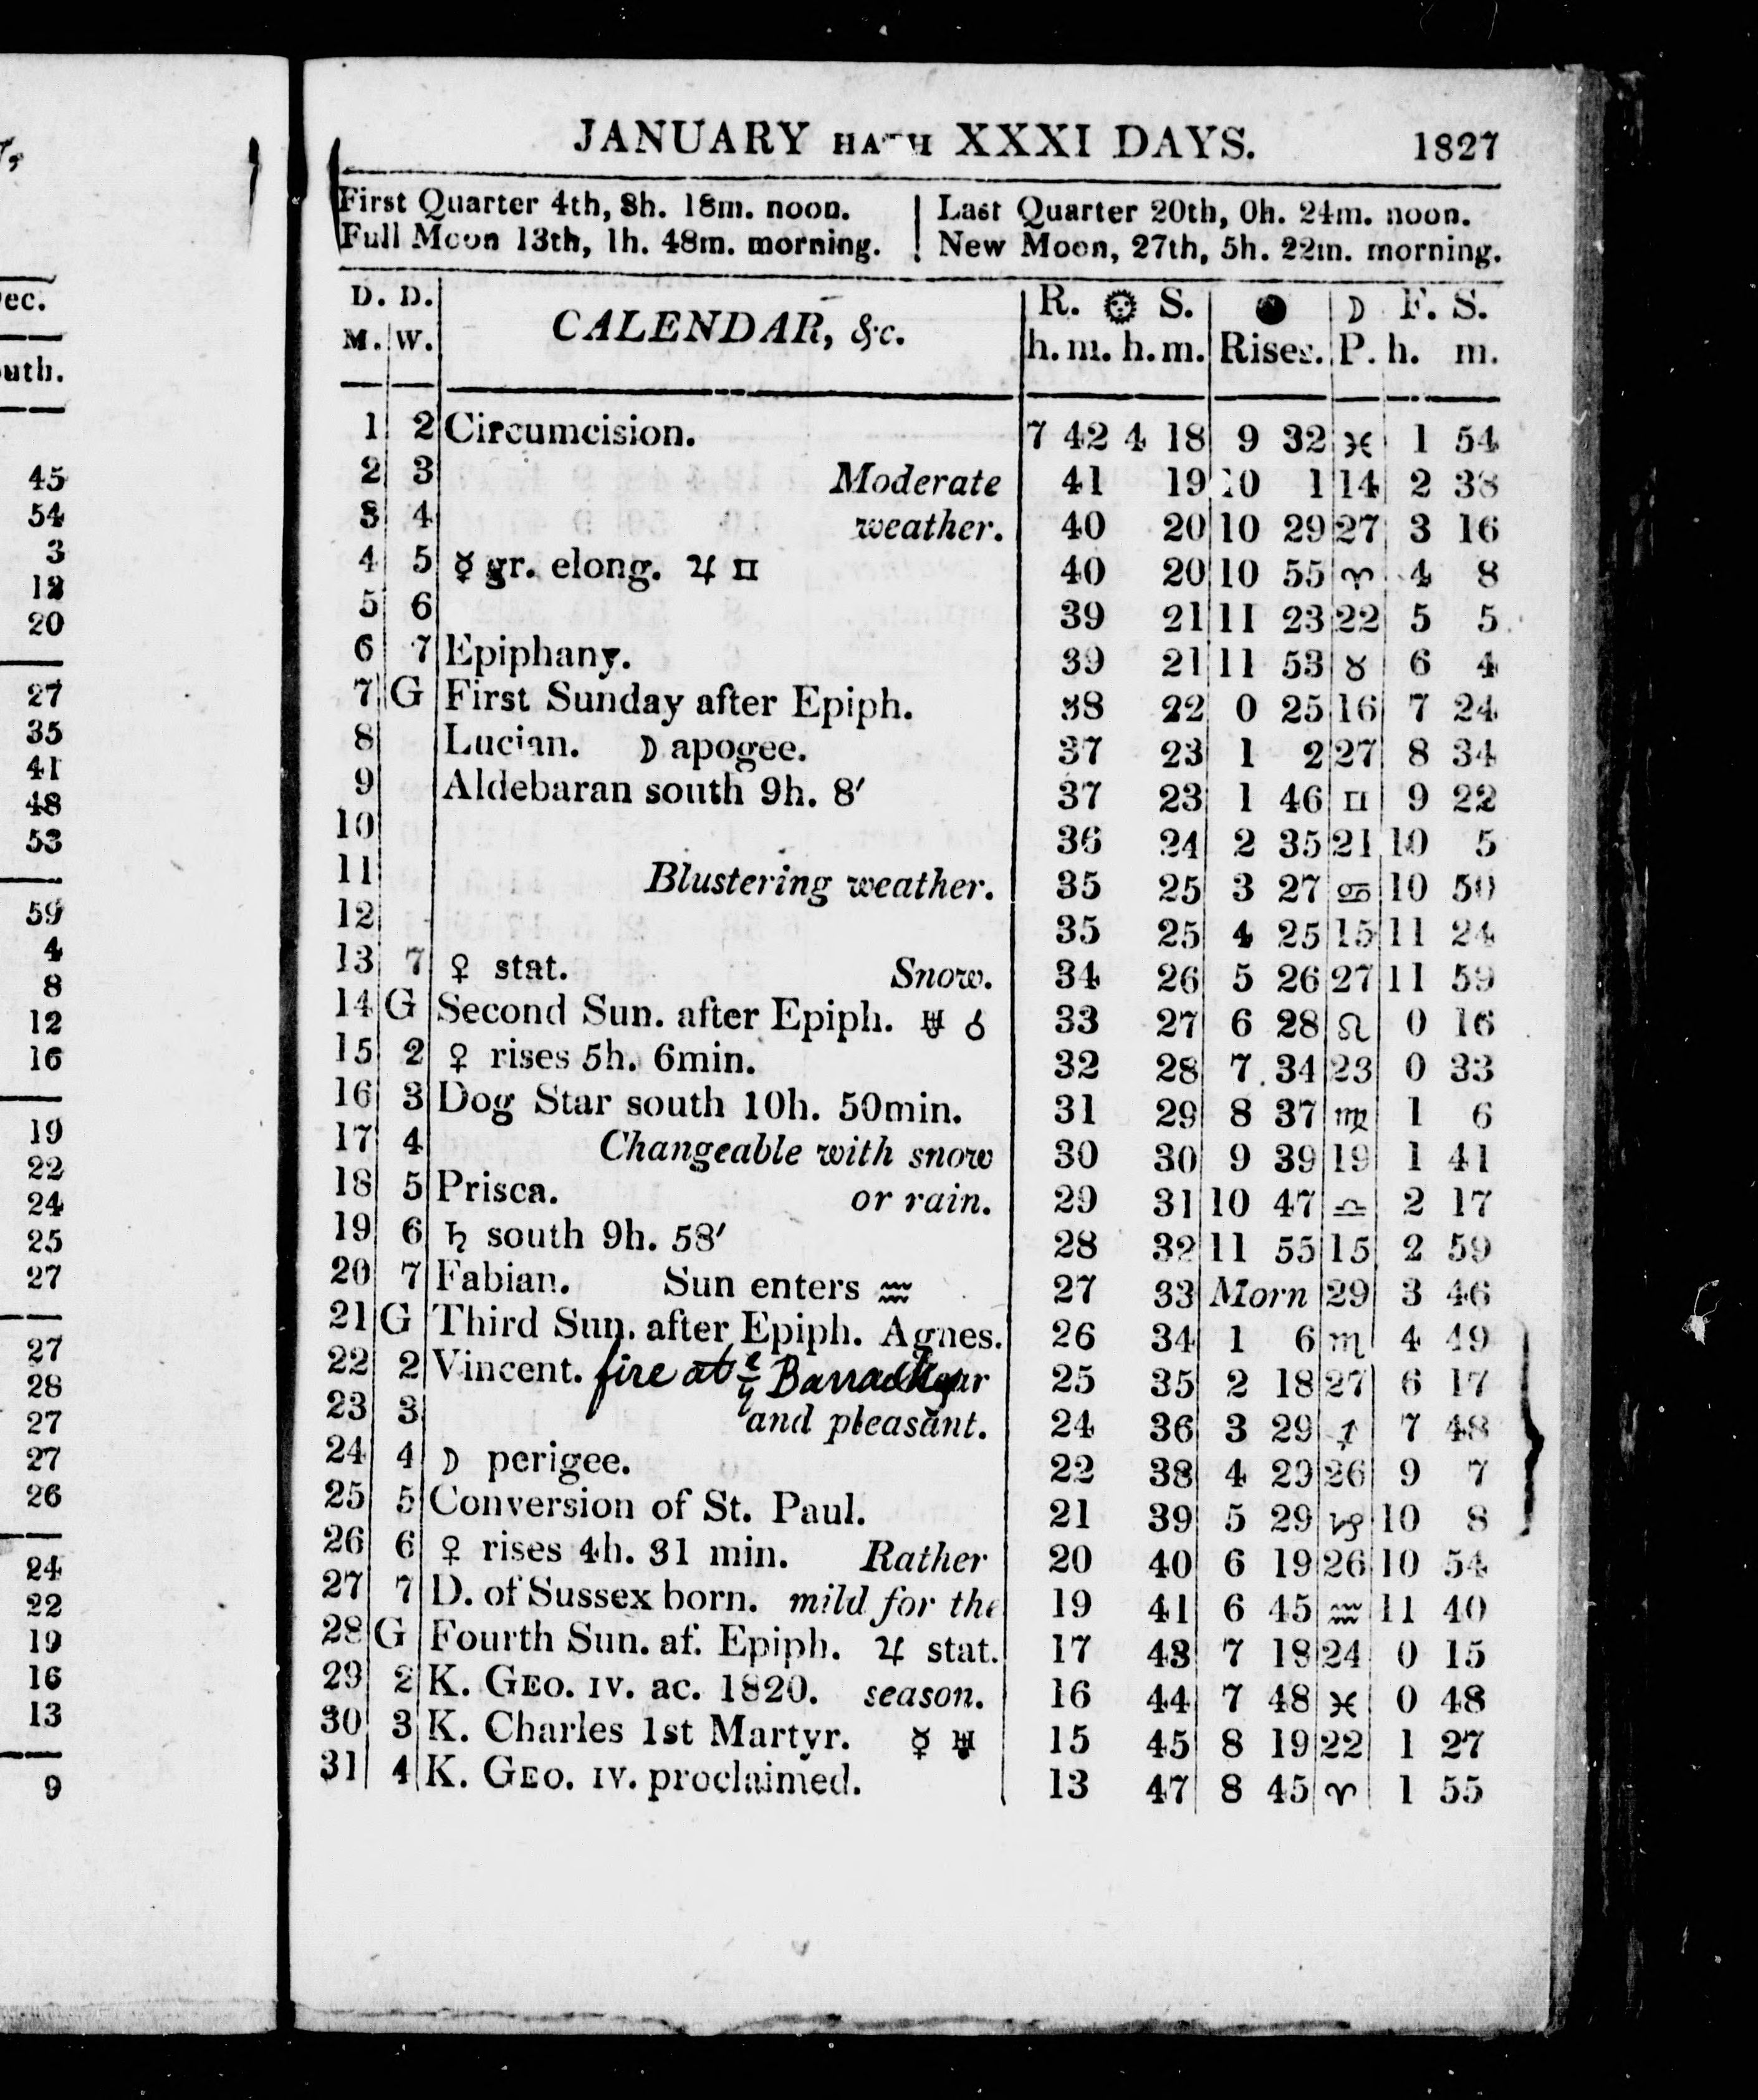 ec.
uth.
45
54
3
12
20
27
35
41
48
53
59
4
8
12
16
19
22
24
25
27
27
28
27
27
26
24
22
19
16
13
9
JANUARY HATH XXXI DAYS. 1827
First Quarter 4th, 8h. 18m. noon. Last Quarter 20th, 0h. 24m. noon.
Full Moon 13th, 1h. 48m. morning. New Moon, 27th, 5h. 22m. morning.
D. D. R. ☼ S. ● ☽ F. S.
M. W. CALENDAR, &c. h. m. h. m. Rises. P. h. m.
1 2 Circumcision. 7 42 4 18 9 32 ♓ 1 54
2 3 Moderate 41 19 10 1 14 2 38
3 4 weather. 40 20 10 29 27 3 16
4 5 ☿ gr. elong. ♃ ♊ 40 20 10 55 ♈ 4 8
5 6 39 21 11 23 22 5 5
6 7 Epiphany. 39 21 11 53 ♉ 6 4
7 G First Sunday after Epiph. 38 22 0 25 16 7 24
8 Lucian. ☽ apogee. 37 23 1 2 27 8 34
9 Aldebaran south 9h. 8′ 37 23 1 46 ♊ 9 22
10 36 24 2 35 21 10 5
11 Blustering weather. 35 25 3 27 ♋ 10 50
12 35 25 4 25 15 11 24
13 7 ♀ stat. Snow. 34 26 5 26 27 11 59
14 G Second Sun. after Epiph. ♅ ☌ 33 27 6 28 ♌ 0 16
15 2 ♀ rises 5h. 6min. 32 28 7 34 23 0 33
16 3 Dog Star south 10h. 50min. 31 29 8 37 ♍ 1 6
17 4 Changeable with snow 30 30 9 39 19 1 41
18 5 Prisca. or rain. 29 31 10 47 ♎ 2 17
19 6 ♄ south 9h. 58′ 28 32 11 55 15 2 59
20 7 Fabian. Sun enters ♒ 27 33 Morn 29 3 46
21 G Third Sun. after Epiph. Agnes. 26 34 1 6 ♏ 4 49
22 2 Vincent. fire at ye Barracks 25 35 2 18 27 6 17
23 3 and pleasant. 24 36 3 29 ♐ 7 48
24 4 ☽ perigee. 22 38 4 29 26 9 7
25 5 Conversion of St. Paul. 21 39 5 29 ♑ 10 8
26 6 ♀ rises 4h. 31 min. Rather 20 40 6 19 26 10 54
27 7 D. of Sussex born. mild for the 19 41 6 45 ♒ 11 40
28 G Fourth Sun. af. Epiph. ♃ stat. 17 43 7 18 24 0 15
29 2 K. GEO. IV. ac. 1820. season. 16 44 7 48 ♓ 0 48
30 3 K. Charles 1st Martyr. ☿ ♅ 15 45 8 19 22 1 27
31 4 K. GEO. IV. proclaimed. 13 47 8 45 ♈ 1 55